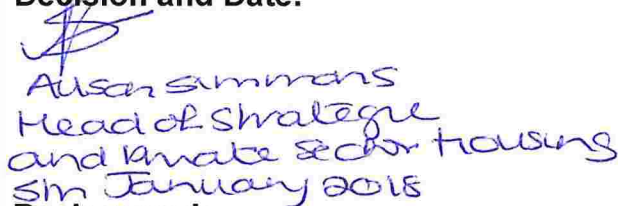 Decision and Date:
Alison Simmons
Head of Strategic
and Private Sector Housing
5th January 2018